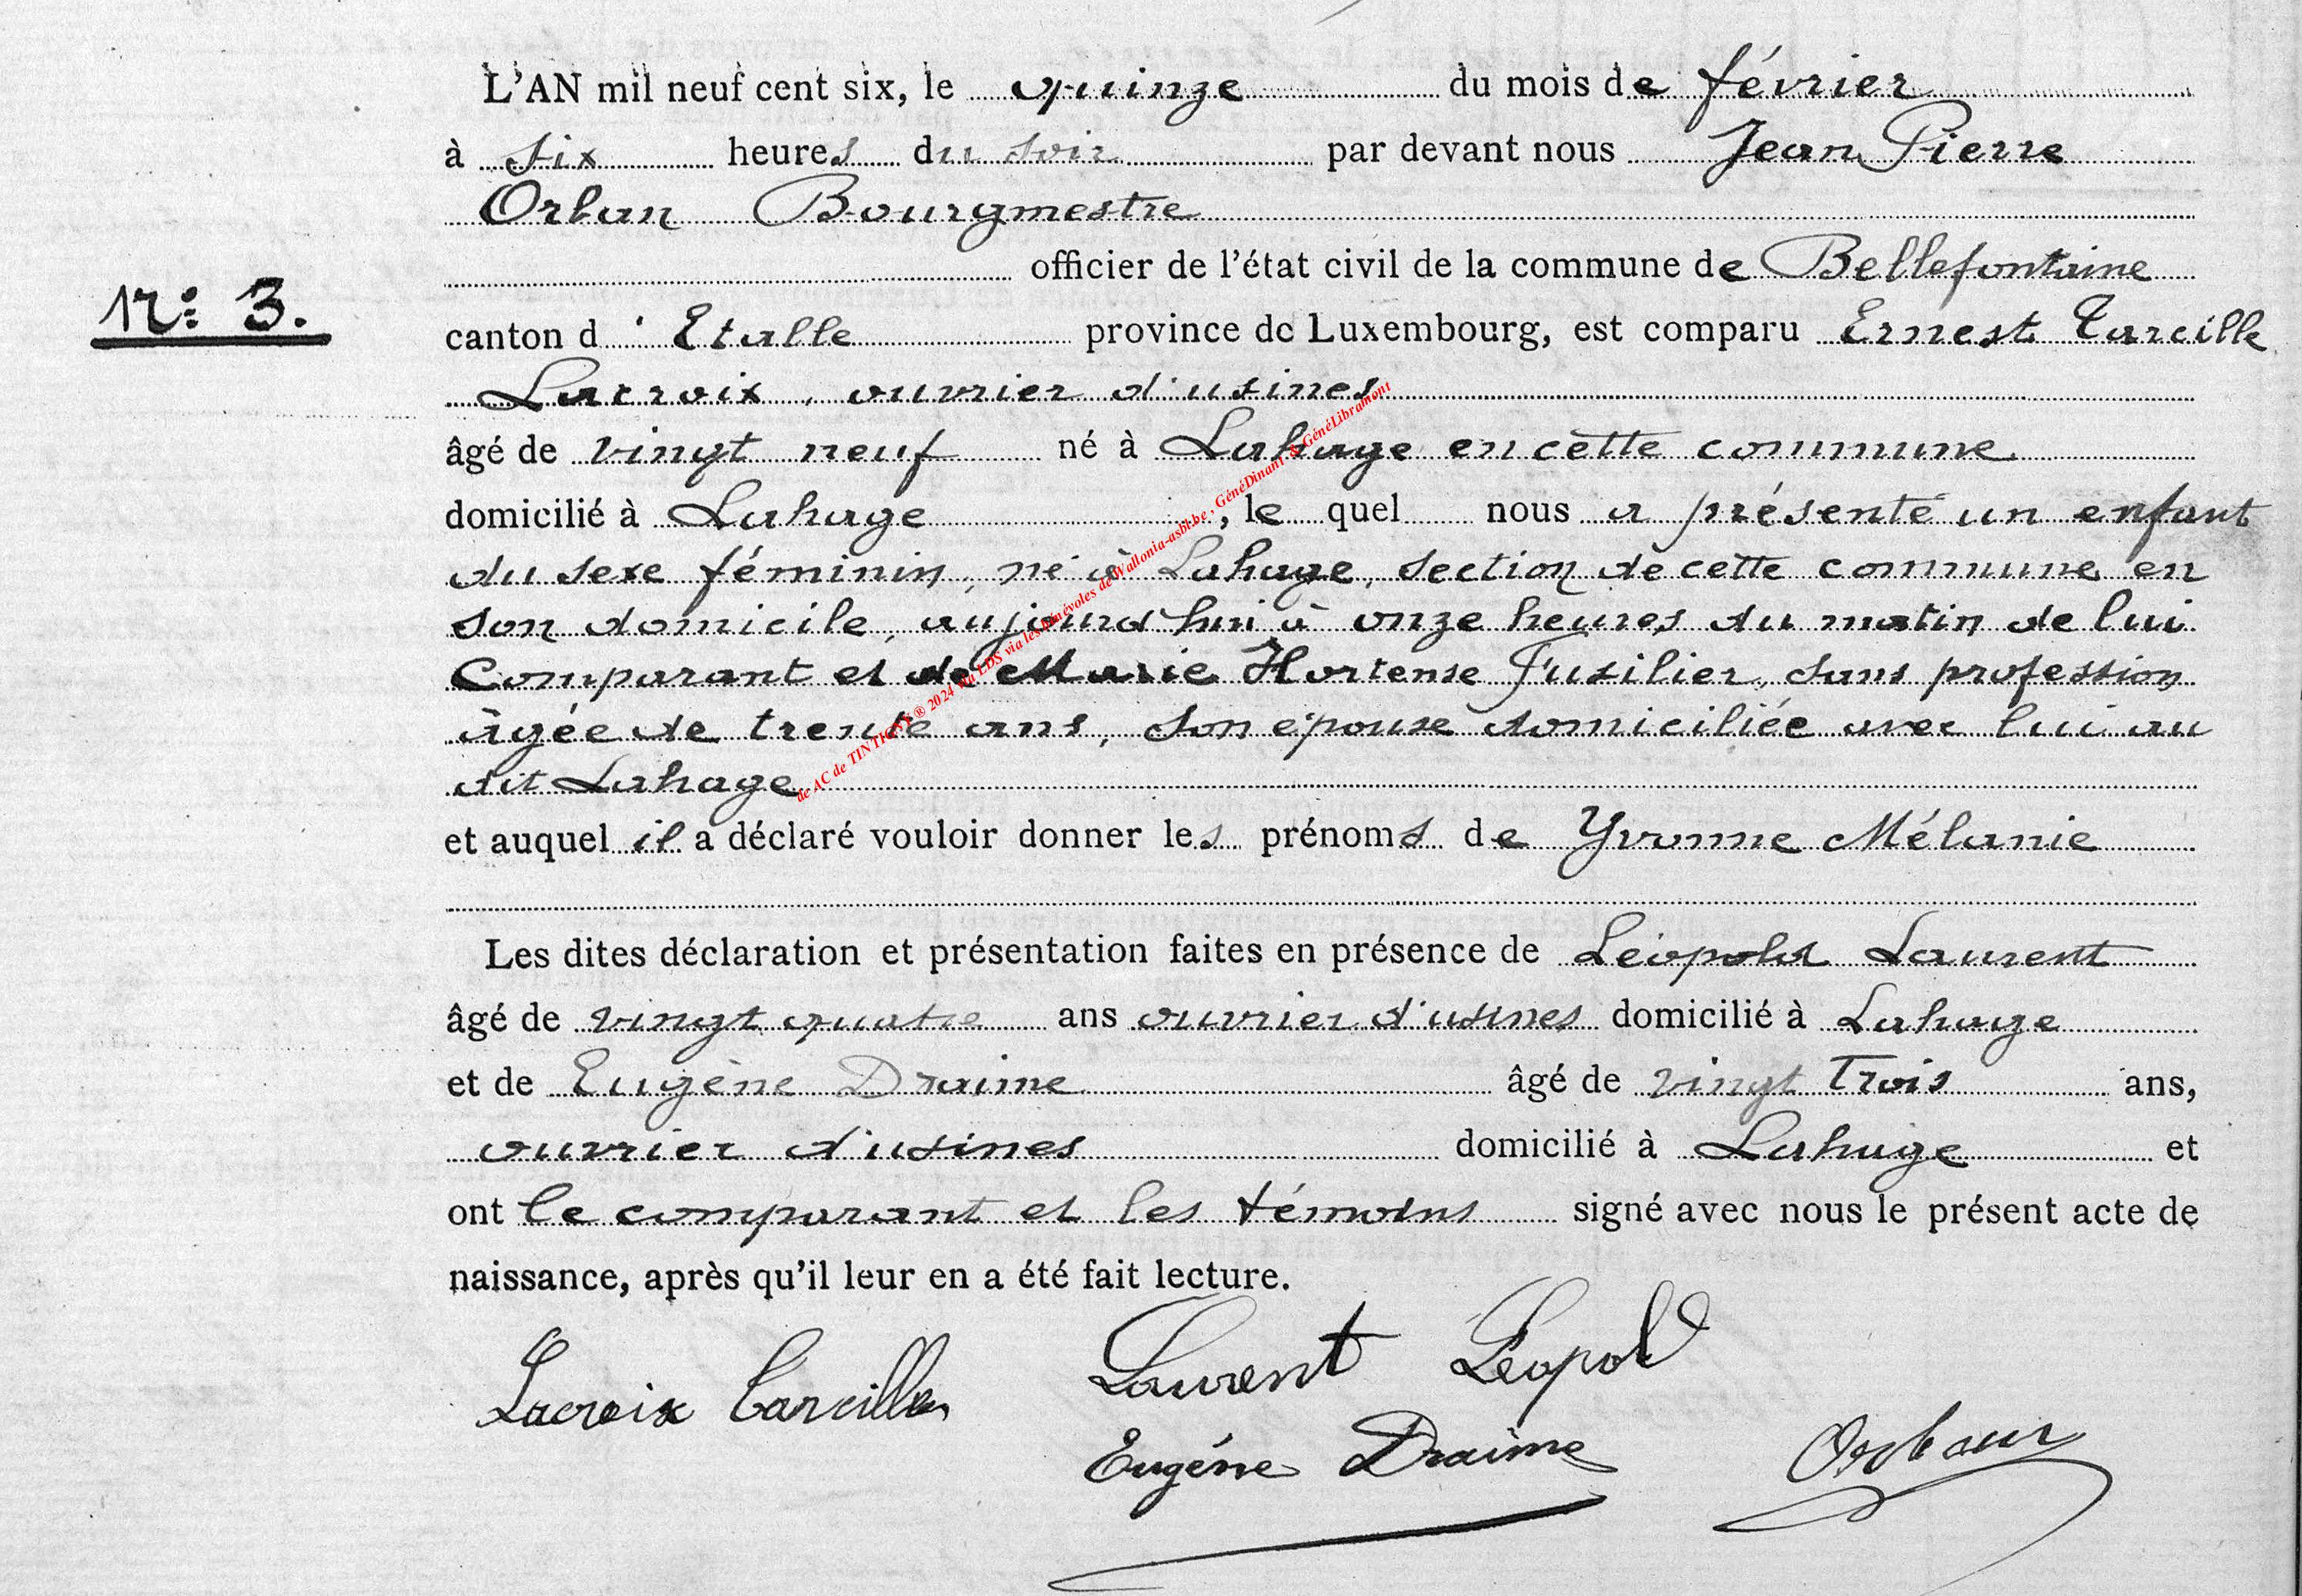 L'AN mil neuf cent six, le quinze du mois de février
à six heures du soir par devant nous Jean Pierre
Orban Bourgmestre
officier de l'état civil de la commune de Bellefontaine
N° 3.
canton d'Etalle province de Luxembourg, est comparu Ernest Tarcille
Lacroix, ouvrier d'usines
âgé de vingt neuf né à Lahage en cette commune
domicilié à Lahage, le quel nous a présenté un enfant
du sexe féminin, né à Lahage, section de cette commune en
son domicile, aujourd'hui à onze heures du matin de lui
Comparant et de Marie Hortense Fusilier, sans profession
âgée de trente ans, son épouse domiciliée avec lui au
dit Lahage
et auquel il a déclaré vouloir donner les prénoms de Yvonne Mélanie
Les dites déclaration et présentation faites en présence de Léopold Laurent
âgé de vingt quatre ans ouvrier d'usines domicilié à Lahage
et de Eugène Draime âgé de vingt trois ans,
ouvrier d'usines domicilié à Lahage et
ont le comparant et les témoins signé avec nous le présent acte de
naissance, après qu'il leur en a été fait lecture.
Lacroix Tarcille Laurent Léopold
Eugéne Draime Orban
de AC de TINTIGNY ® 2024 via LDS via les bénévoles de Wallonia-asbl.be, GénéDinant & GénéLibramont